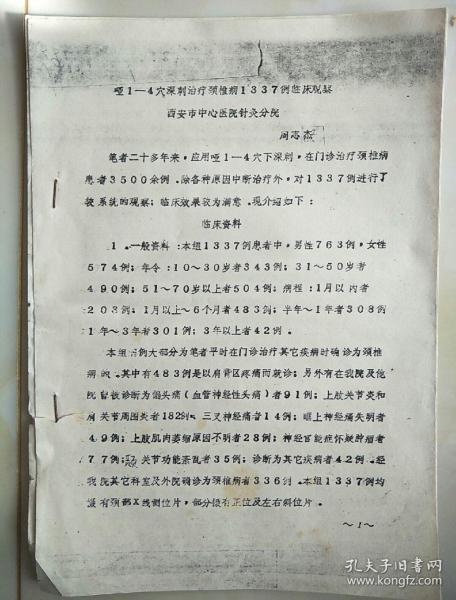 哑1—4穴深刺治疗颈椎病1337例临床观察
西安市中心医院针灸分院
闫志杰
笔者二十多年来，应用哑1—4穴下深刺，在门诊治疗颈椎病
患者3500余例。除各种原因中断治疗外，对1337例进行了
较系统的观察；临床效果较为满意。现介绍如下：
临床资料
1.一般资料：本组1337例患者中，男性763例，女性
574例；年令：10～30岁者343例；31～50岁者
490例；51～70岁以上者504例；病程：1月以内者
203例；1月以上～6个月者483例；半年～1年者308例
1年～3年者301例；3年以上者42例。
本组病例大部分为笔者平时在门诊治疗其它疾病时确诊为颈椎
病的。其中有483例是以肩背区疼痛而就诊；另外有在我院及他
院曾被诊断为偏头痛（血管神经性头痛）者91例；上肢关节炎和
肩关节周围炎者182例。三叉神经痛者14例；眶上神经痛失明者
49例；上肢肌肉萎缩原因不明者28例；神经官能症怀疑肿瘤者
77例；关节功能紊乱者35例；诊断为其它疾病者42例。经
我院其它科室及外院确诊为颈椎病者336例。本组1337例均
摄有颈部X线侧位片，部分摄有正位及左右斜位片。
～1～
孔夫子旧书网
www.kongfz.com